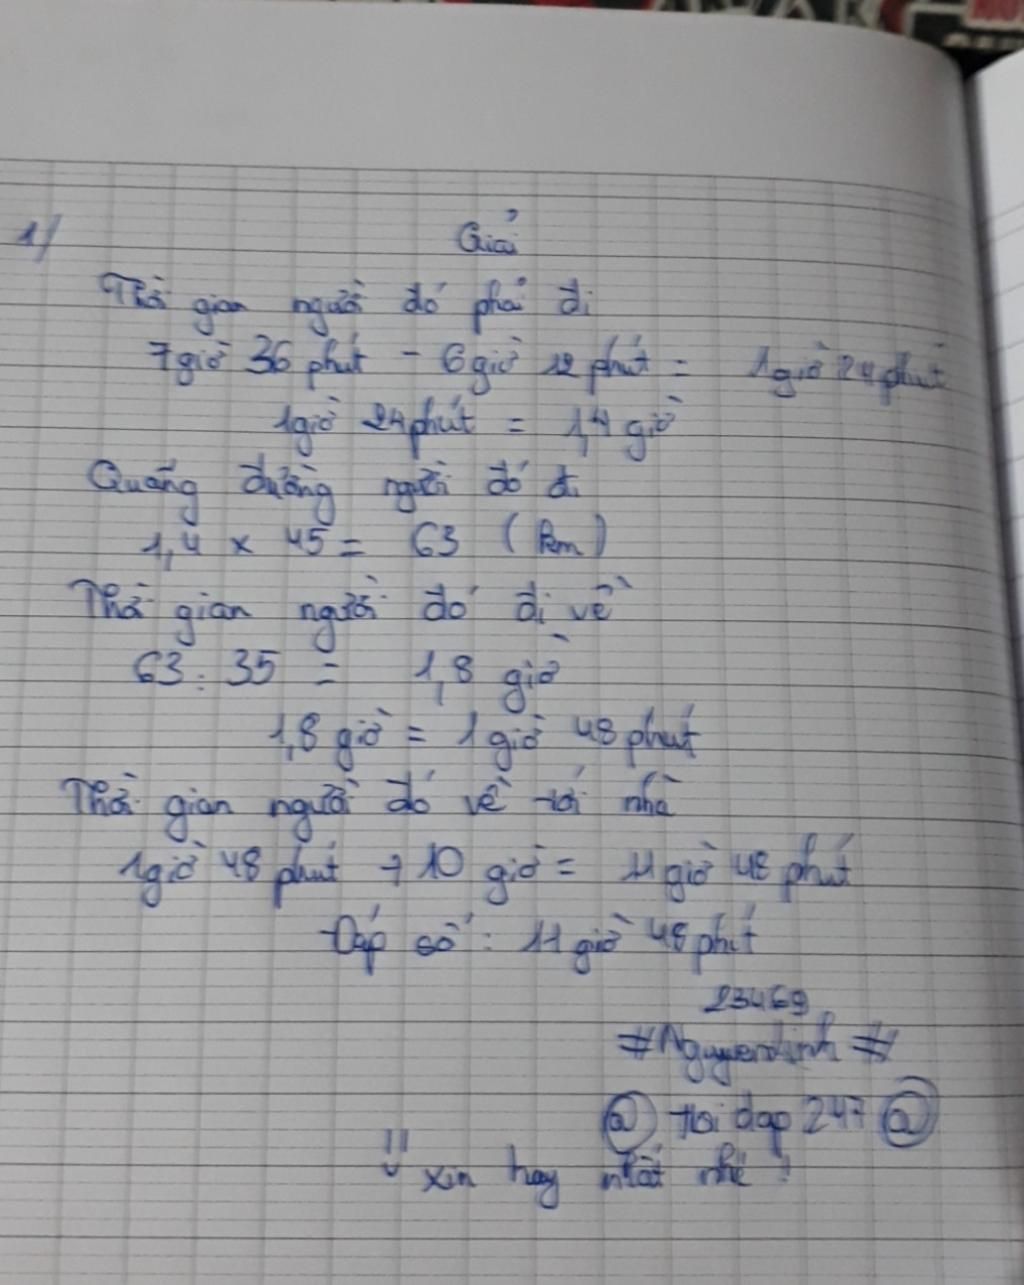 1/ Giải
Thời gian người đó phải đi
7 giờ 36 phút - 6 giờ 12 phút = 1 giờ 24 phút
1 giờ 24 phút = 1,4 giờ
Quãng đường người đó đi
1,4 x 45 = 63 (km)
Thời gian người đó đi về
63 : 35 = 1,8 giờ
1,8 giờ = 1 giờ 48 phút
Thời gian người đó về tới nhà
1 giờ 48 phút + 10 giờ = 11 giờ 48 phút
Đáp số : 11 giờ 48 phút
23469
#Nguyendinh #
@ Hoi dap 247 @
xin hay nhất nhé !